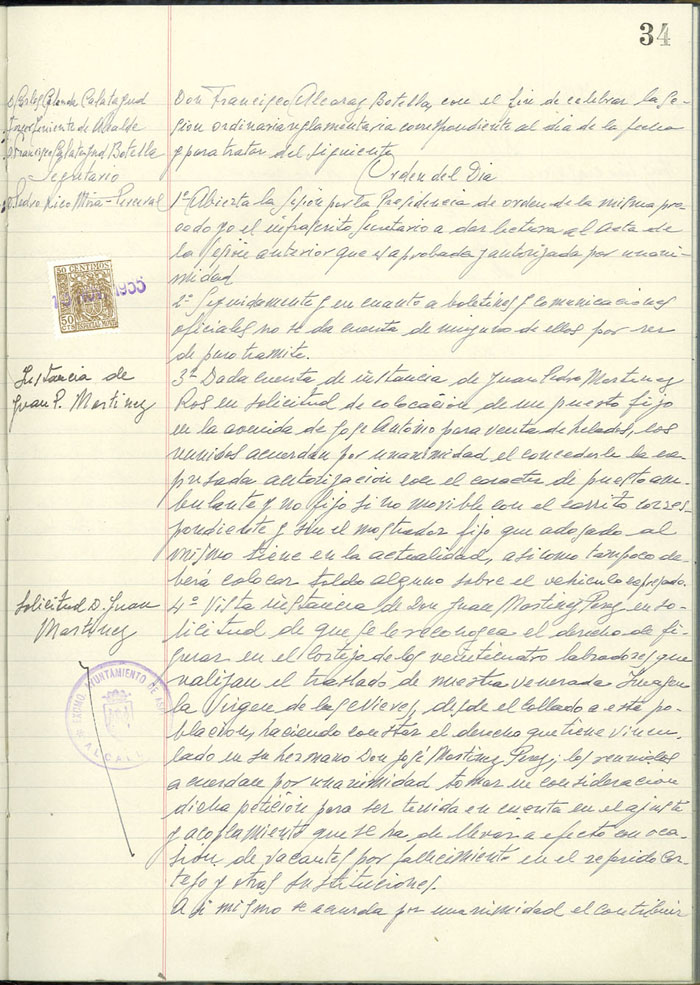 34
D. Carlos Calatayud
Tercer Teniente de Alcalde
D. Francisco Calatayud Botella
Secretario
D. Pedro Rico Mira-Perceval
Don Francisco Alcaraz Botella, con el fin de celebrar la Se-
sion ordinaria reglamentaria correspondiente al dia de la fecha
y para tratar del siguiente
Orden del Dia
1º Abierta la Sesión por la Presidencia de orden de la misma pro-
cedo yo el infrascrito Secretario a dar lectura al acta de
la Sesión anterior que es aprobada y autorizada por unani-
midad
2º Seguidamente y en cuanto a boletines y comunicaciones
oficiales no se da cuenta de ninguno de ellos por ser
de puro tramite.
50 CENTIMOS
50
CTS
ESPECIAL MOVIL
Instancia de
Juan P. Martinez
3º Dada cuenta de instancia de Juan Pedro Martinez
Ros en solicitud de colocación de un puesto fijo
en la avenida de Jose António para venta de helados, los
reunidos acuerdan por unanimidad el concederle la ex-
presada autorización con el caracter de puesto am-
bulante y no fijo si no movible con el carrito corres-
pondiente y sin el mostrador fijo que adosado al
mismo tiene en la actualidad, asi como tampoco de-
berá colocar toldo alguno sobre el vehiculo expresado.
Solicitud D. Juan
Martinez
4º Vista instancia de Don Juan Martinez Perez en so-
licitud de que se le reconozca el derecho de fi-
gurar en el cortejo de los veinticuatro labradores que
realizan el traslado de nuestra venerada Imagen
la Virgen de las Nieves, desde el Collado a esta po-
blacion, haciendo constar el derecho que tiene vincu-
lado en su hermano Don José Martinez Perez; los reunidos
acuerdan por unanimidad tomar en consideracion
dicha petición para ser tenida en cuenta en el ajuste
y acoplamiento que se ha de llevar a efecto con oca-
sión de vacantes por fallecimiento en el referido cor-
tejo y otras sustituciones.
Asi mismo se acuerda por unanimidad el contribuir
EXCMO. AYUNTAMIENTO DE ASPE
ALCALDIA